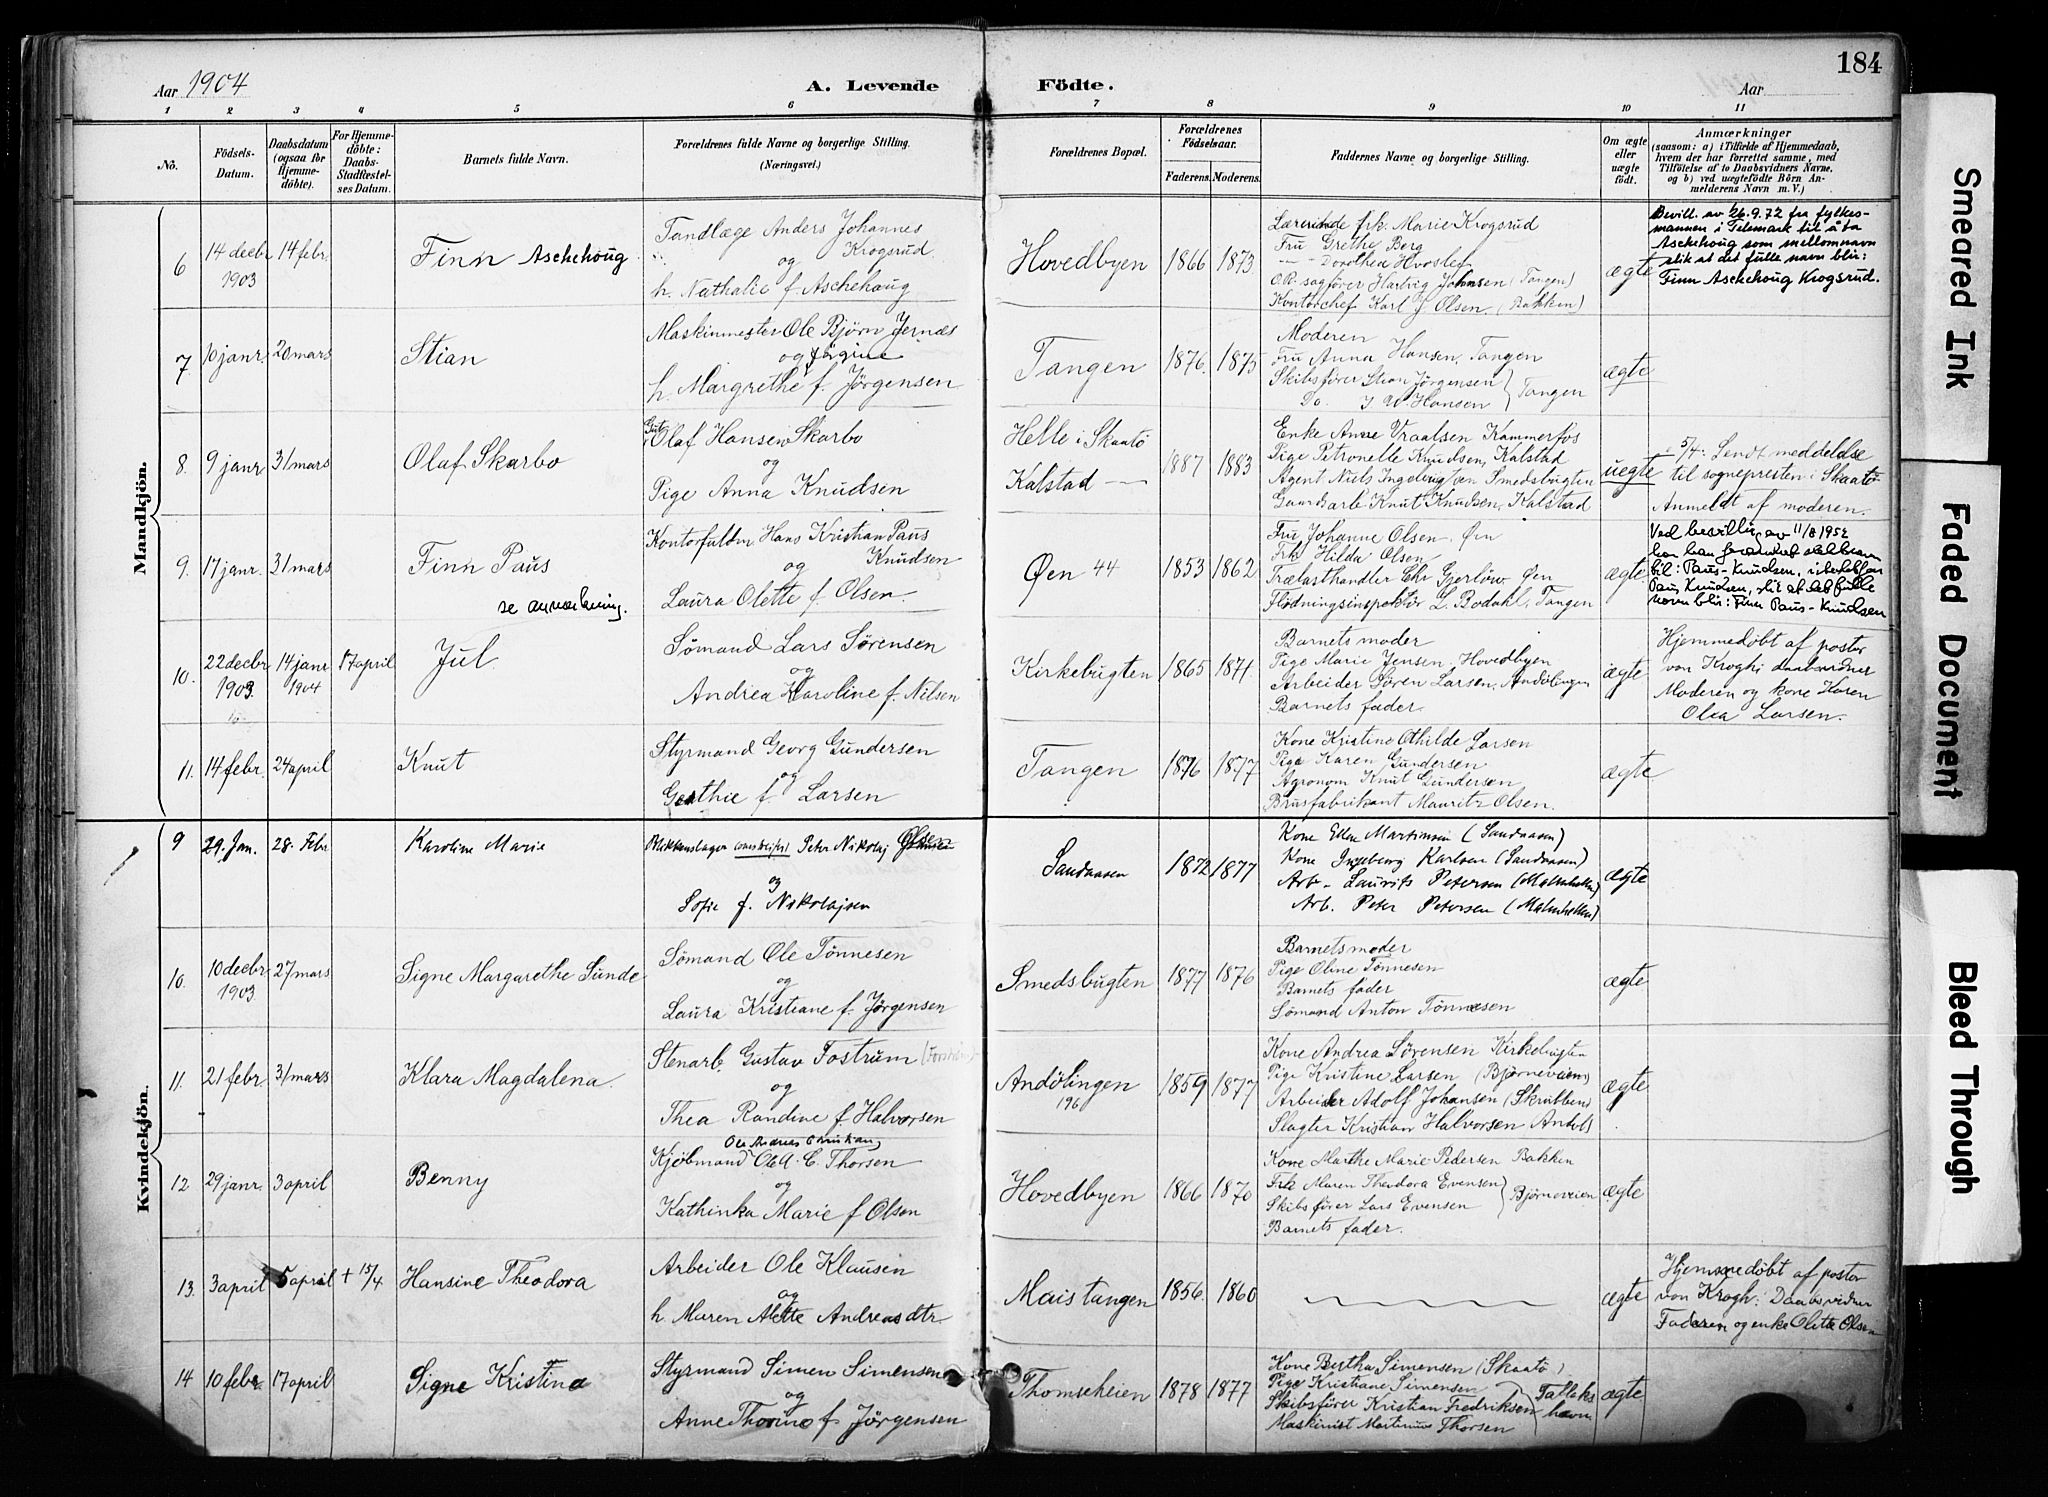 184
Aar 1904
A. Levende Födte.
Aar
1 2 3 4 5 6 7 8 9 10 11
No.
Födsels-Datum.
Daabsdatum (ogsaa for Hjemme-döbte).
For Hjemme-döbte: Daabs-Stadfæstel-ses Datum.
Barnets fulde Navn.
Forældrenes fulde Navne og borgerlige Stilling.
(Næringsvei.)
Forældrenes Bopæl.
Forældrenes Födselsaar.
Faderens. Moderens.
Faddernes Navne og borgerlige Stilling.
Om ægte eller uægte födt.
Anmærkninger
(saasom: a) i Tilfælde af Hjemmedaab,
hvem der har forrettet samme, med
Tilföielse af to Daabsvidners Navne,
og b) ved uægtefödte Börn An-
melderens Navn m. V.)
Mandkjön.
6 14 decbr 1903 14 febr Finn Aschehoug
Tandlæge Anders Johannes
Krogsrud
og
h. Nathalie f. Aschehoug
Hovedbyen 1866 1873
Lærerinde frk. Marie Krogsrud
Fru Grethe Borg
Dorothea Hvoslef
O.R. sagfører Hartvig Johnsen (Tangen)
Kontorchef Karl J Olsen. (Bakken)
ægte
Bevill. av 26.9.72 fra fylkes-
mannen i Telemark til å ta
Aschehoug som mellomnavn
slik at det fulle navn blir:
Finn Aschehoug Krogsrud.
7. 10 janr. 20 mars Stian
Maskinmester Ole Bjørn Jernæs
og Jørgine
h. Margrethe f. Jörgensen
Tangen 1876. 1875
Moderen
Fru Anna Hansen, Tangen
Skibsfører Stian Jørgensen
Do. J W. Hansen } Tangen
ægte
8. 9 janr 31 mars Olaf Skarbo
Gut Olaf Hansen Skarbo
og
Pige Anna Knudsen
Helle i Skaatö
Kalstad
1887 1883
Enke Anne Vraalsen Kammerfos
Pige Petronelle Knudsen, Kalstad
Agent Niels Smedsbugten
Gaardsarb. Knut Knudsen, Kalstad
uegte
5/4: Sendt meddelelse
til sognepresten i Skaatö
Anmeldt af moderen.
9. 17 janr. 31 mars Finn Paus
se anmerkning.
Kontorfuldm Hans Kristian Paus
Knudsen
og
Laura Olette f. Olsen.
Øen 44 1853 1862
Fru Johanne Olsen. Øen
Frk Hilda Olsen
Trælasthandler Chr Gjerløw Øen
Flødningsinspektör L. Bodahl, Tangen
ægte
Ved bevilling av 11/8 1952
har han forandret slektsnavn
til: Paus-Knudsen, istedetfor
Paus Knudsen, slik at det fulle
navn blir: Finn Paus-Knudsen
10. 22 decbr 1903. 14 janr 1904 17 april Jul.
Sömand Lars Sörensen
og
Andrea Karoline f. Nilsen
Kirkebugten 1865 1871.
Barnets moder
Pige Marie Jensen, Hovedbyen
Arbeider Sören Larsen. Andölingen
Barnets fader.
ægte
Hjemmedøbt af pastor
von Krogh: daabsvidner
Moderen og kone Karen
Olea Larsen.
11. 14 febr. 24 april Knut
Styrmand Georg Gundersen
og
Gerthie f. Larsen
Tangen 1876 1877
Kone Kristine Othilde Larsen
Pige Karen Gundersen
Agronom Knut Gundersen
Brusfabrikant Mauritz Olsen.
ægte
Kvindekjön.
9 29. Jan. 28. Febr Karoline Marie
Blikkenslager Peter Nikolaj
og
Sofie f. Nikolajsen
Sandaasen 1872 1877
Kone Ellen Martinsen (Sandaasen)
Kone Ingeborg Karlsen (Sandaasen)
Arb. Laurits Petersen (Malmhellen)
Arb. Peter Petersen (Malmhellen)
ægte
10. 10 decbr 1903. 27 mars Signe Margarethe Sunde
Sömand Ole Tönnesen
og
Laura Kristiane f. Jørgensen
Smedsbugten 1877 1876
Barnets moder
Pige Oline Tönnesen
Barnets fader
Sömand Anton Tönnesen
ægte
11. 21 febr 31 mars Klara Magdalena.
Stenarb. Gustav Fostrum
og
Thea Randine f Halvorsen
Andölingen 196 1859 1877
Kone Andrea Sørensen Kirkebugten
Pige Kristine Larsen (Bjørneveien)
Arbeider Adolf Johansen (Skrubben)
Slagter Kristian Halvorsen Andöl.
ægte
12 29 janr. 3 april Benny
Ole Andreas Christian
Kjøbmand Ole A. C. Thorsen
og
Kathinka Marie f Olsen
Hovedbyen 1866 1870
Kone Marthe Marie Pedersen Bakken
Frk Maren Theodora Evensen
Skibsfører Lars Evensen } Bjørneveien
Barnets fader.
ægte
13. 3 april 5 april + 15/4 Hansine Theodora
Arbeider Ole Klausen
og
h. Maren Alette Andreasdtr
Maistangen 1856. 1860
ægte
Hjemmedøbt af pastor
von Krogh: Daabsvidner
Faderen og enke Olette Olsen
14 10 febr. 17 april Signe Kristine
Styrmand Simen Simensen
og
Anne Thorine f. Jørgensen
Thomseheien 1878 1877
Kone Bertha Simensen (Skaatö)
Pige Kristiane Simensen
Skibsfører Kristian Fredriksen
Maskinist Martinius Thorsen
ægte
Smeared Ink
Faded Document
Bleed Through